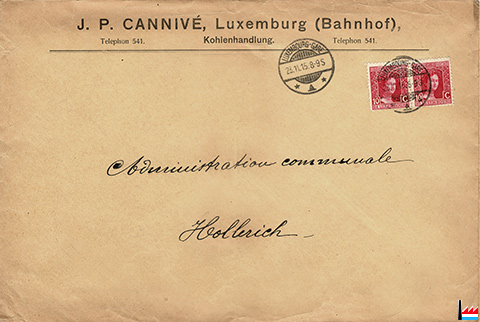 J. P. CANNIVÉ, Luxemburg (Bahnhof),
Telephon 541. Kohlenhandlung. Telephon 541.
LUXEMBOURG-GARE
25.11.15. 8-9 S
10 C C
Administration communale
Hollerich